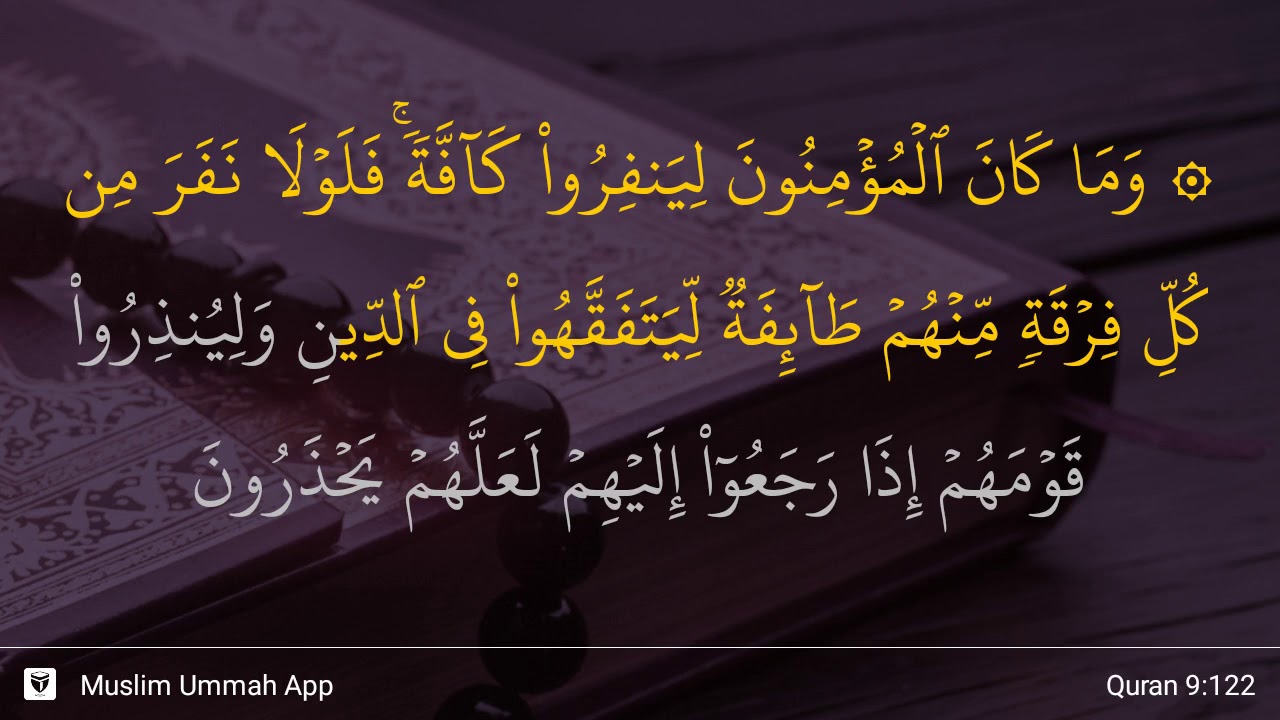 ۞ وَمَا كَانَ ٱلْمُؤْمِنُونَ لِيَنفِرُوا۟ كَآفَّةً ۚ فَلَوْلَا نَفَرَ مِن
كُلِّ فِرْقَةٍ مِّنْهُمْ طَآئِفَةٌ لِّيَتَفَقَّهُوا۟ فِى ٱلدِّينِ وَلِيُنذِرُوا۟
قَوْمَهُمْ إِذَا رَجَعُوٓا۟ إِلَيْهِمْ لَعَلَّهُمْ يَحْذَرُونَ
Muslim Ummah App
Quran 9:122